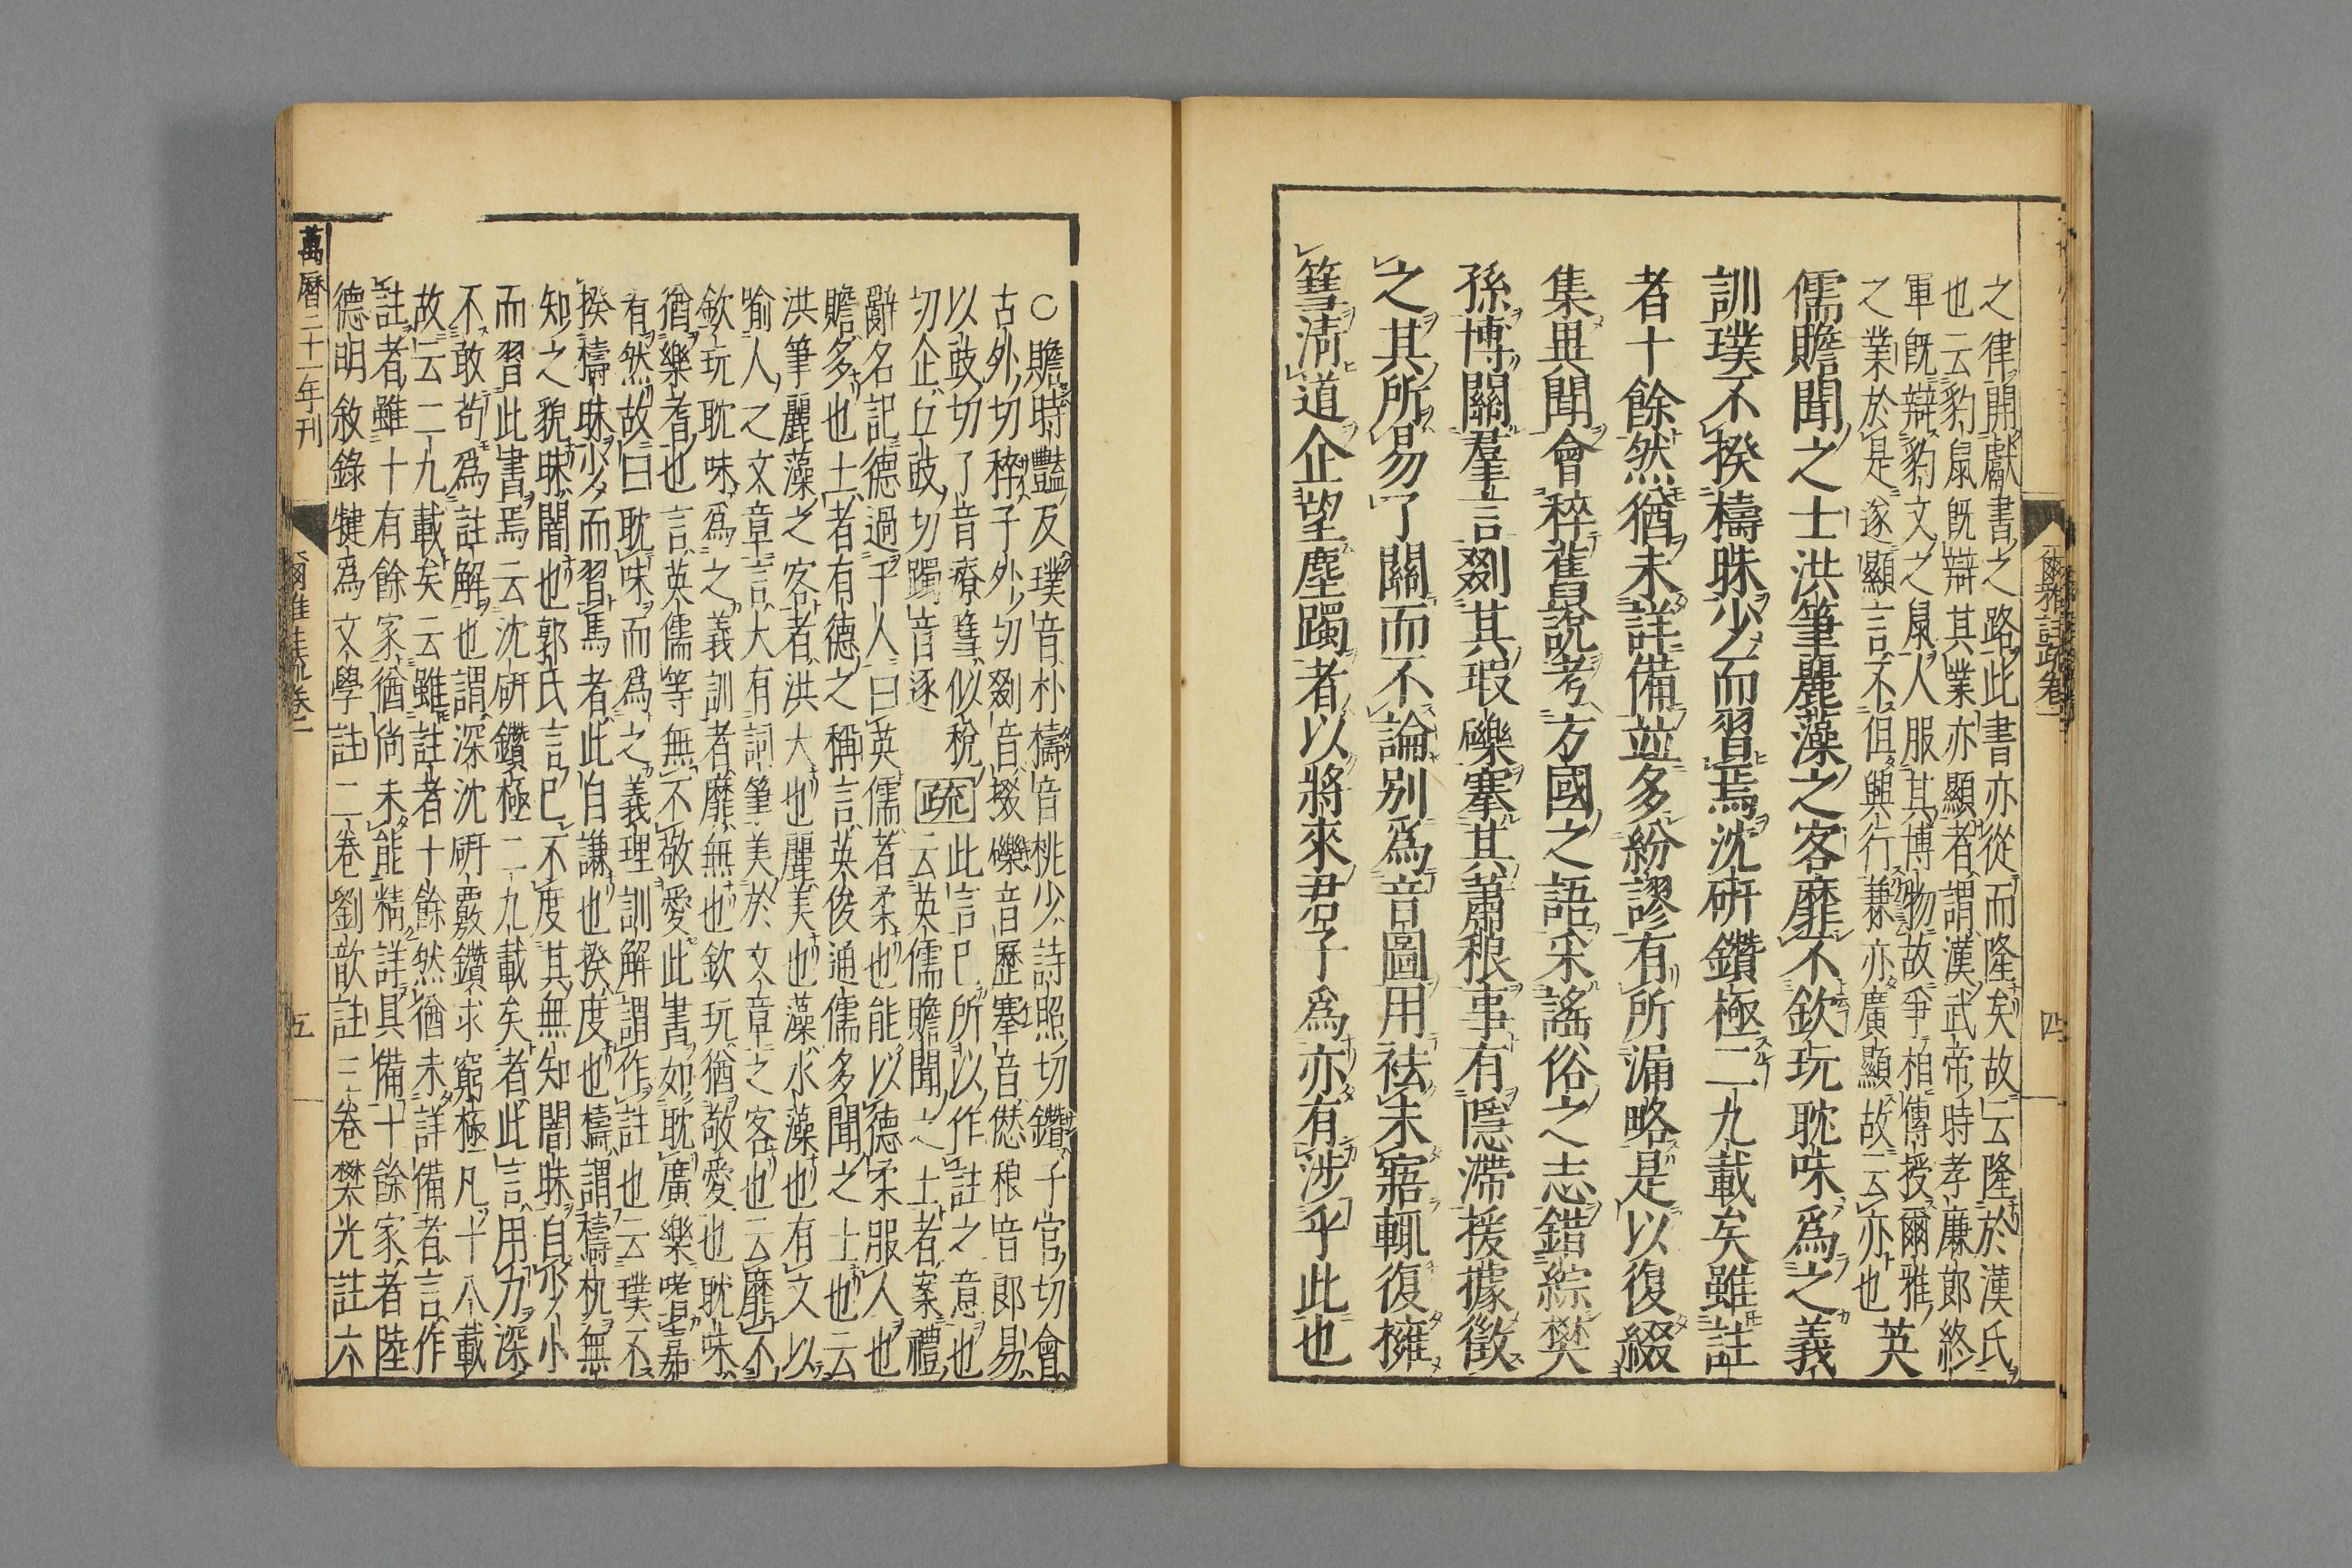 之律開獻書之路此書亦從而隆矣故云隆於漢氏
也云豹鼠既辯其業亦顯者謂漢武帝時孝廉郎終
軍既辯豹文之鼠人服其博物故爭相傳授爾雅
之業於是遂顯言不但興行兼亦廣顯故云亦也
英
儒贍聞之士洪筆麗藻之客靡不欽玩耽味爲之義
訓璞不揆檮昧少而習焉沈硏鑽極二九載矣雖註
者十餘然猶未詳備竝多紛謬有所漏略是以復綴
集異聞會稡舊說考方國之語采謠俗之志錯綜樊
孫博關羣言剟其瑕礫搴其蕭稂事有隱滯援據徵
之其所易了闕而不論別爲音圖用祛未寤輒復擁
篲淸道企望塵躅者以將來君子爲亦有涉乎此也
爾雅註疏卷一
四
○贍時豔反璞音朴檮音桃少詩照切鑽子官切會
古外切稡子外切剟音掇礫音歷搴音愆稂音郎易
以豉切了音療篲似稅
切企丘豉切躅音逐
疏
此言已所以作註之意也
云英儒贍聞之士者案禮
辯名記德過千人曰英儒者柔也能以德柔服人也
贍多也士者有德之稱言英俊通儒多聞之士也云
洪筆麗藻之客者洪大也麗美也藻水藻也有文以
喻人之文章言大有詞筆美於文章之客也云靡不
欽玩耽味爲之義訓者靡無也欽玩猶敬愛也耽味
猶樂耆也言英儒等無不敬愛此書如耽廣樂嗜嘉
有然故曰耽味而爲之義理訓解謂作註也云璞不
揆檮昧少而習焉者此自謙也揆度也檮謂檮杌無
知之貌昧闇也郭氏言已不度其無知闇昧自少小
而習此書焉云沈硏鑽極二九載矣者此言用力深
不敢苟爲註解也謂深沈硏覈鑽求窮極凡十八載
故云二九載矣云雖註者十餘然猶未詳備者言作
註者雖十有餘家猶尙未能精詳具備十餘家者陸
德明敘錄犍爲文學註二卷劉歆註三卷樊光註六
萬曆二十一年刊
爾雅註疏卷一
五